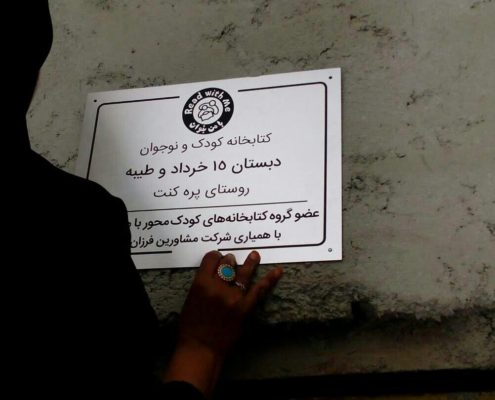 Read with Me
با من بخوان
کتابخانه کودک و نوجوان
دبستان ۱۵ خرداد و طیبه
روستای پره کنت
عضو گروه کتابخانه‌های کودک محور با
با همیاری شرکت مشاورین فرزان